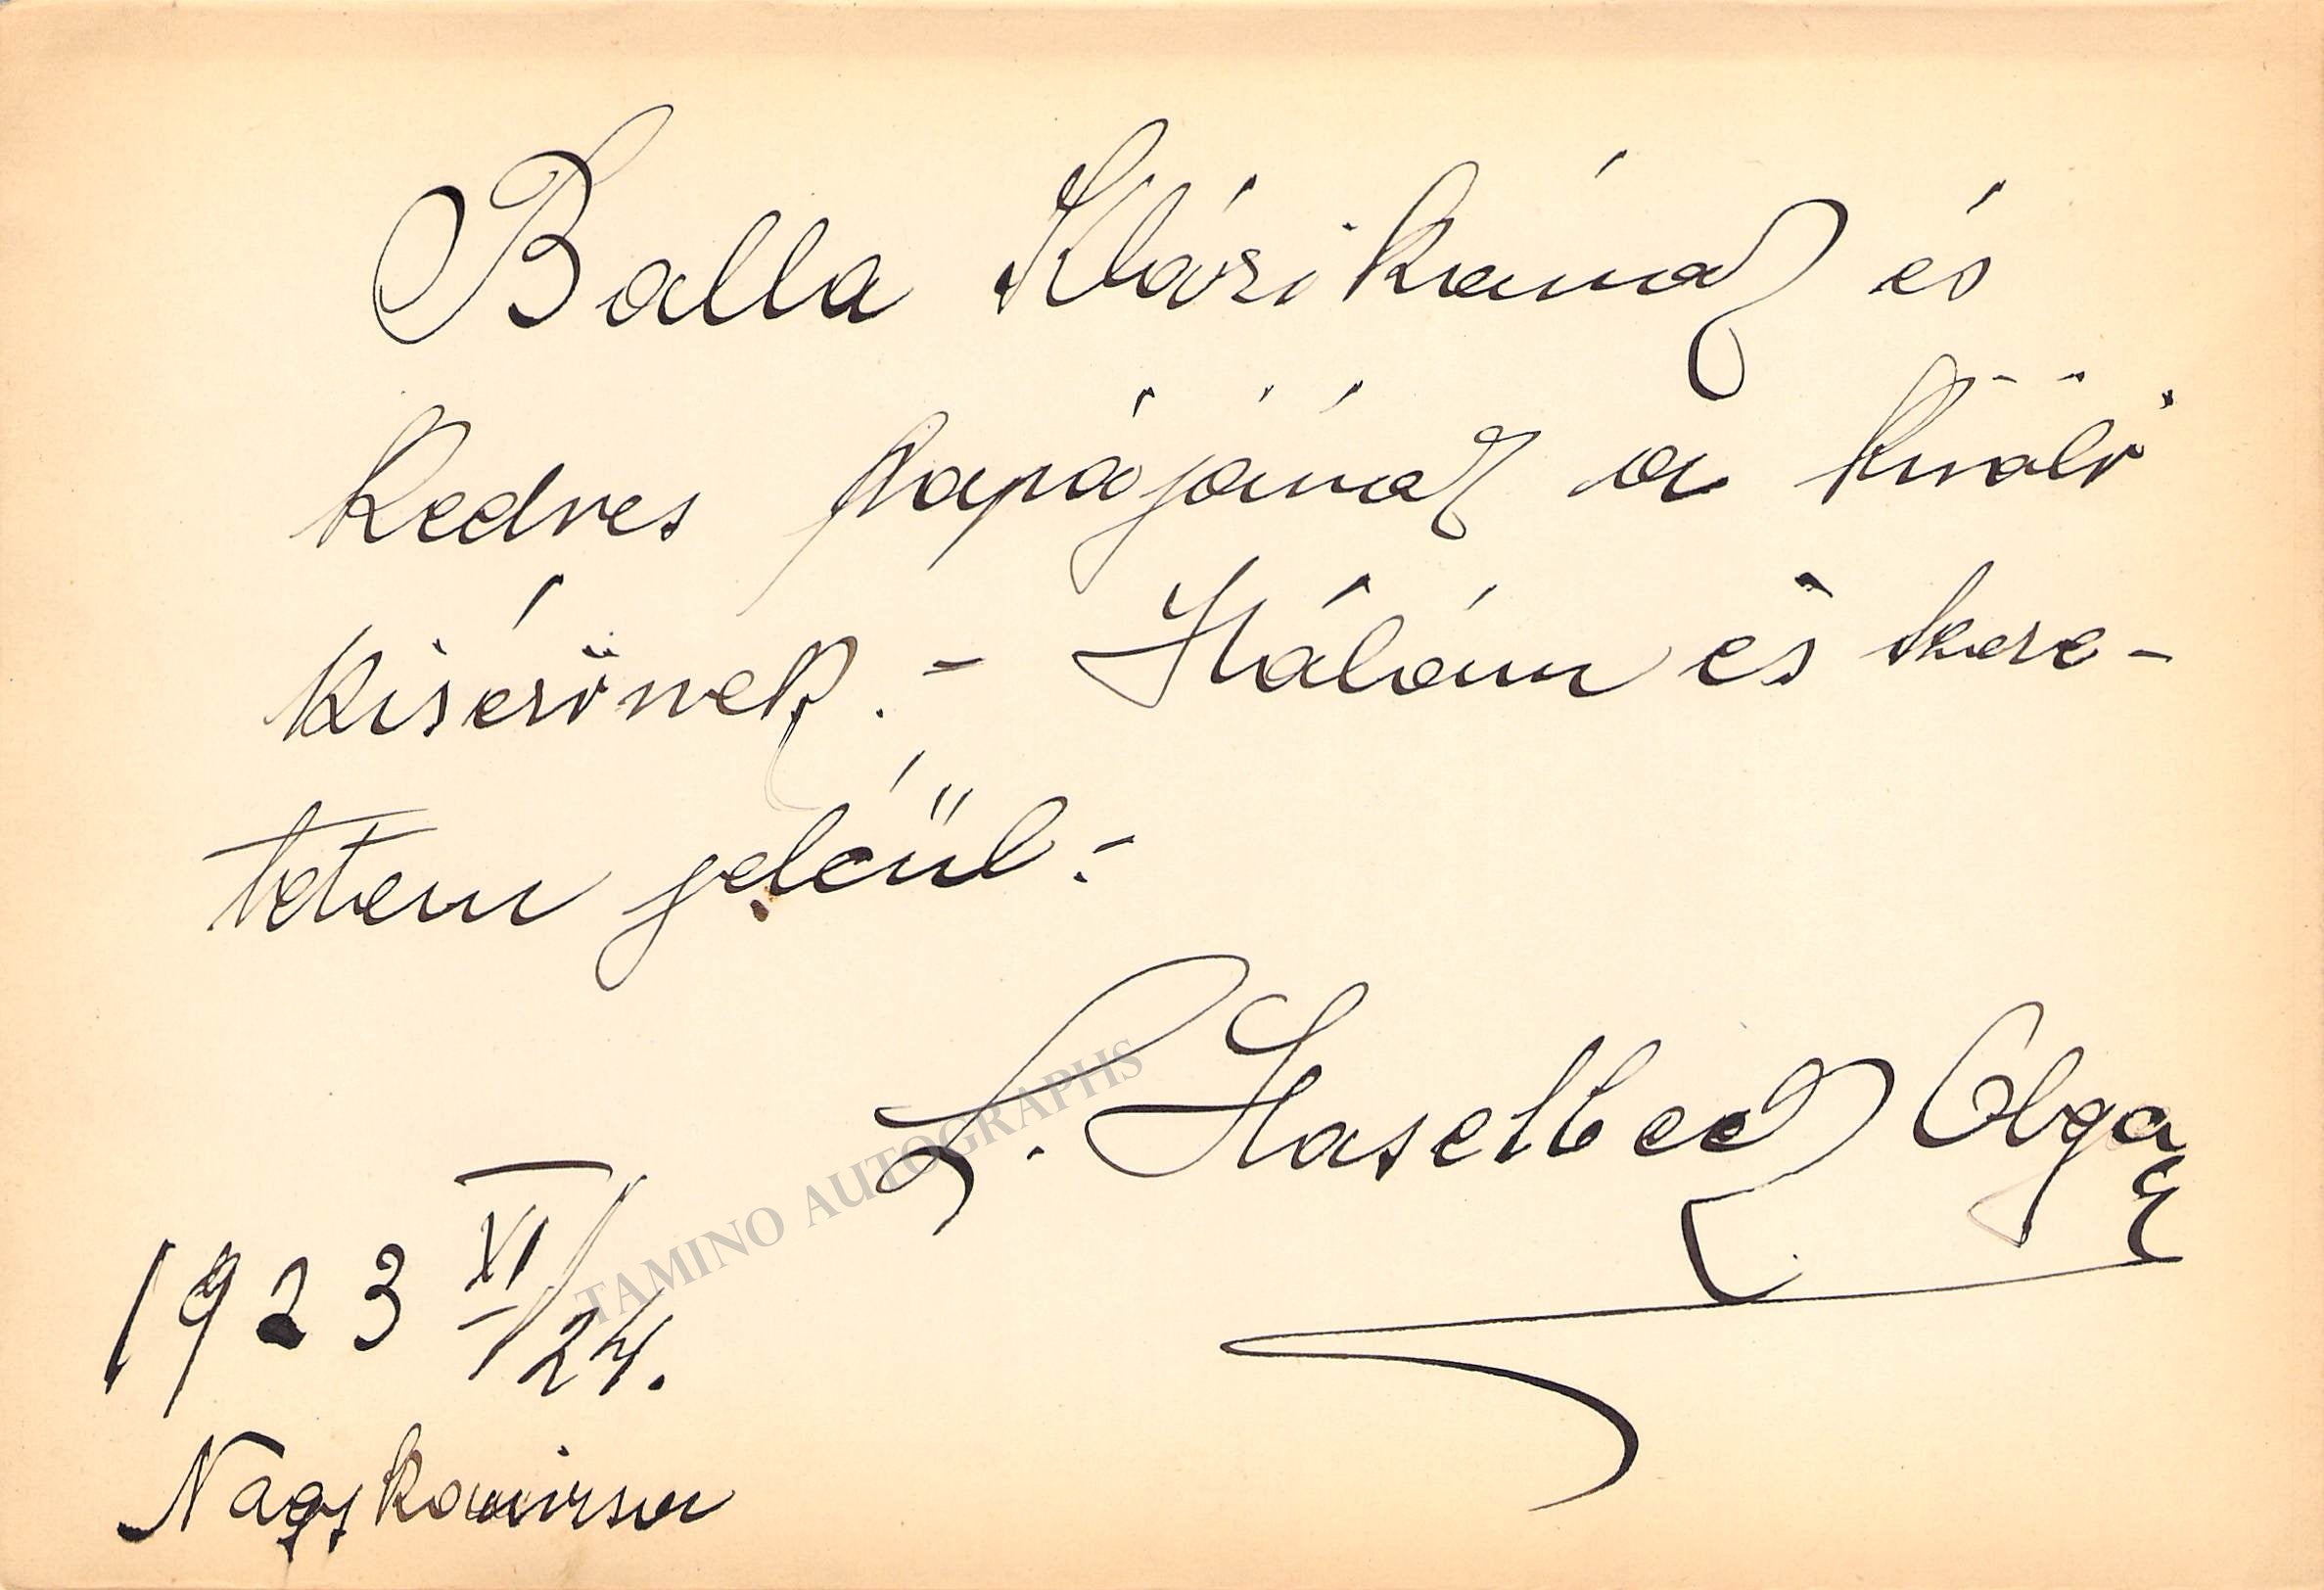 Balla Klárikának és
Kedves papájának a kiváló
Kisérőnek. - Hálám és szere-
tetem jeléül -
L. Haselbeck Olga
1923 XI/24.
Nagykanizsa
TAMINO AUTOGRAPHS